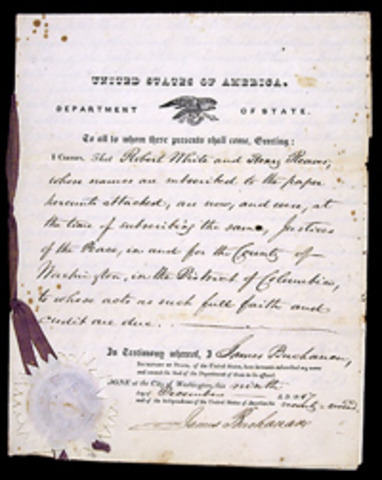 UNITED STATES OF AMERICA.
DEPARTMENT OF STATE.
To all to whom these presents shall come, Greeting:
I Certify, That Robert White and Henry Reaver,
whose names are subscribed to the paper
hereunto attached, are now, and were, at
the time of subscribing the same, Justices
of the Peace, in and for the County of
Washington, in the District of Columbia,
to whose acts as such full faith and
credit are due.
In Testimony whereof, I James Buchanan,
Secretary of State of the United States, have hereunto subscribed my name
and caused the Seal of the Department of State to be affixed.
DONE at the City of Washington, this ninth
day of December A.D. 1847
and of the Independence of the United States of America the seventy-second.
James Buchanan